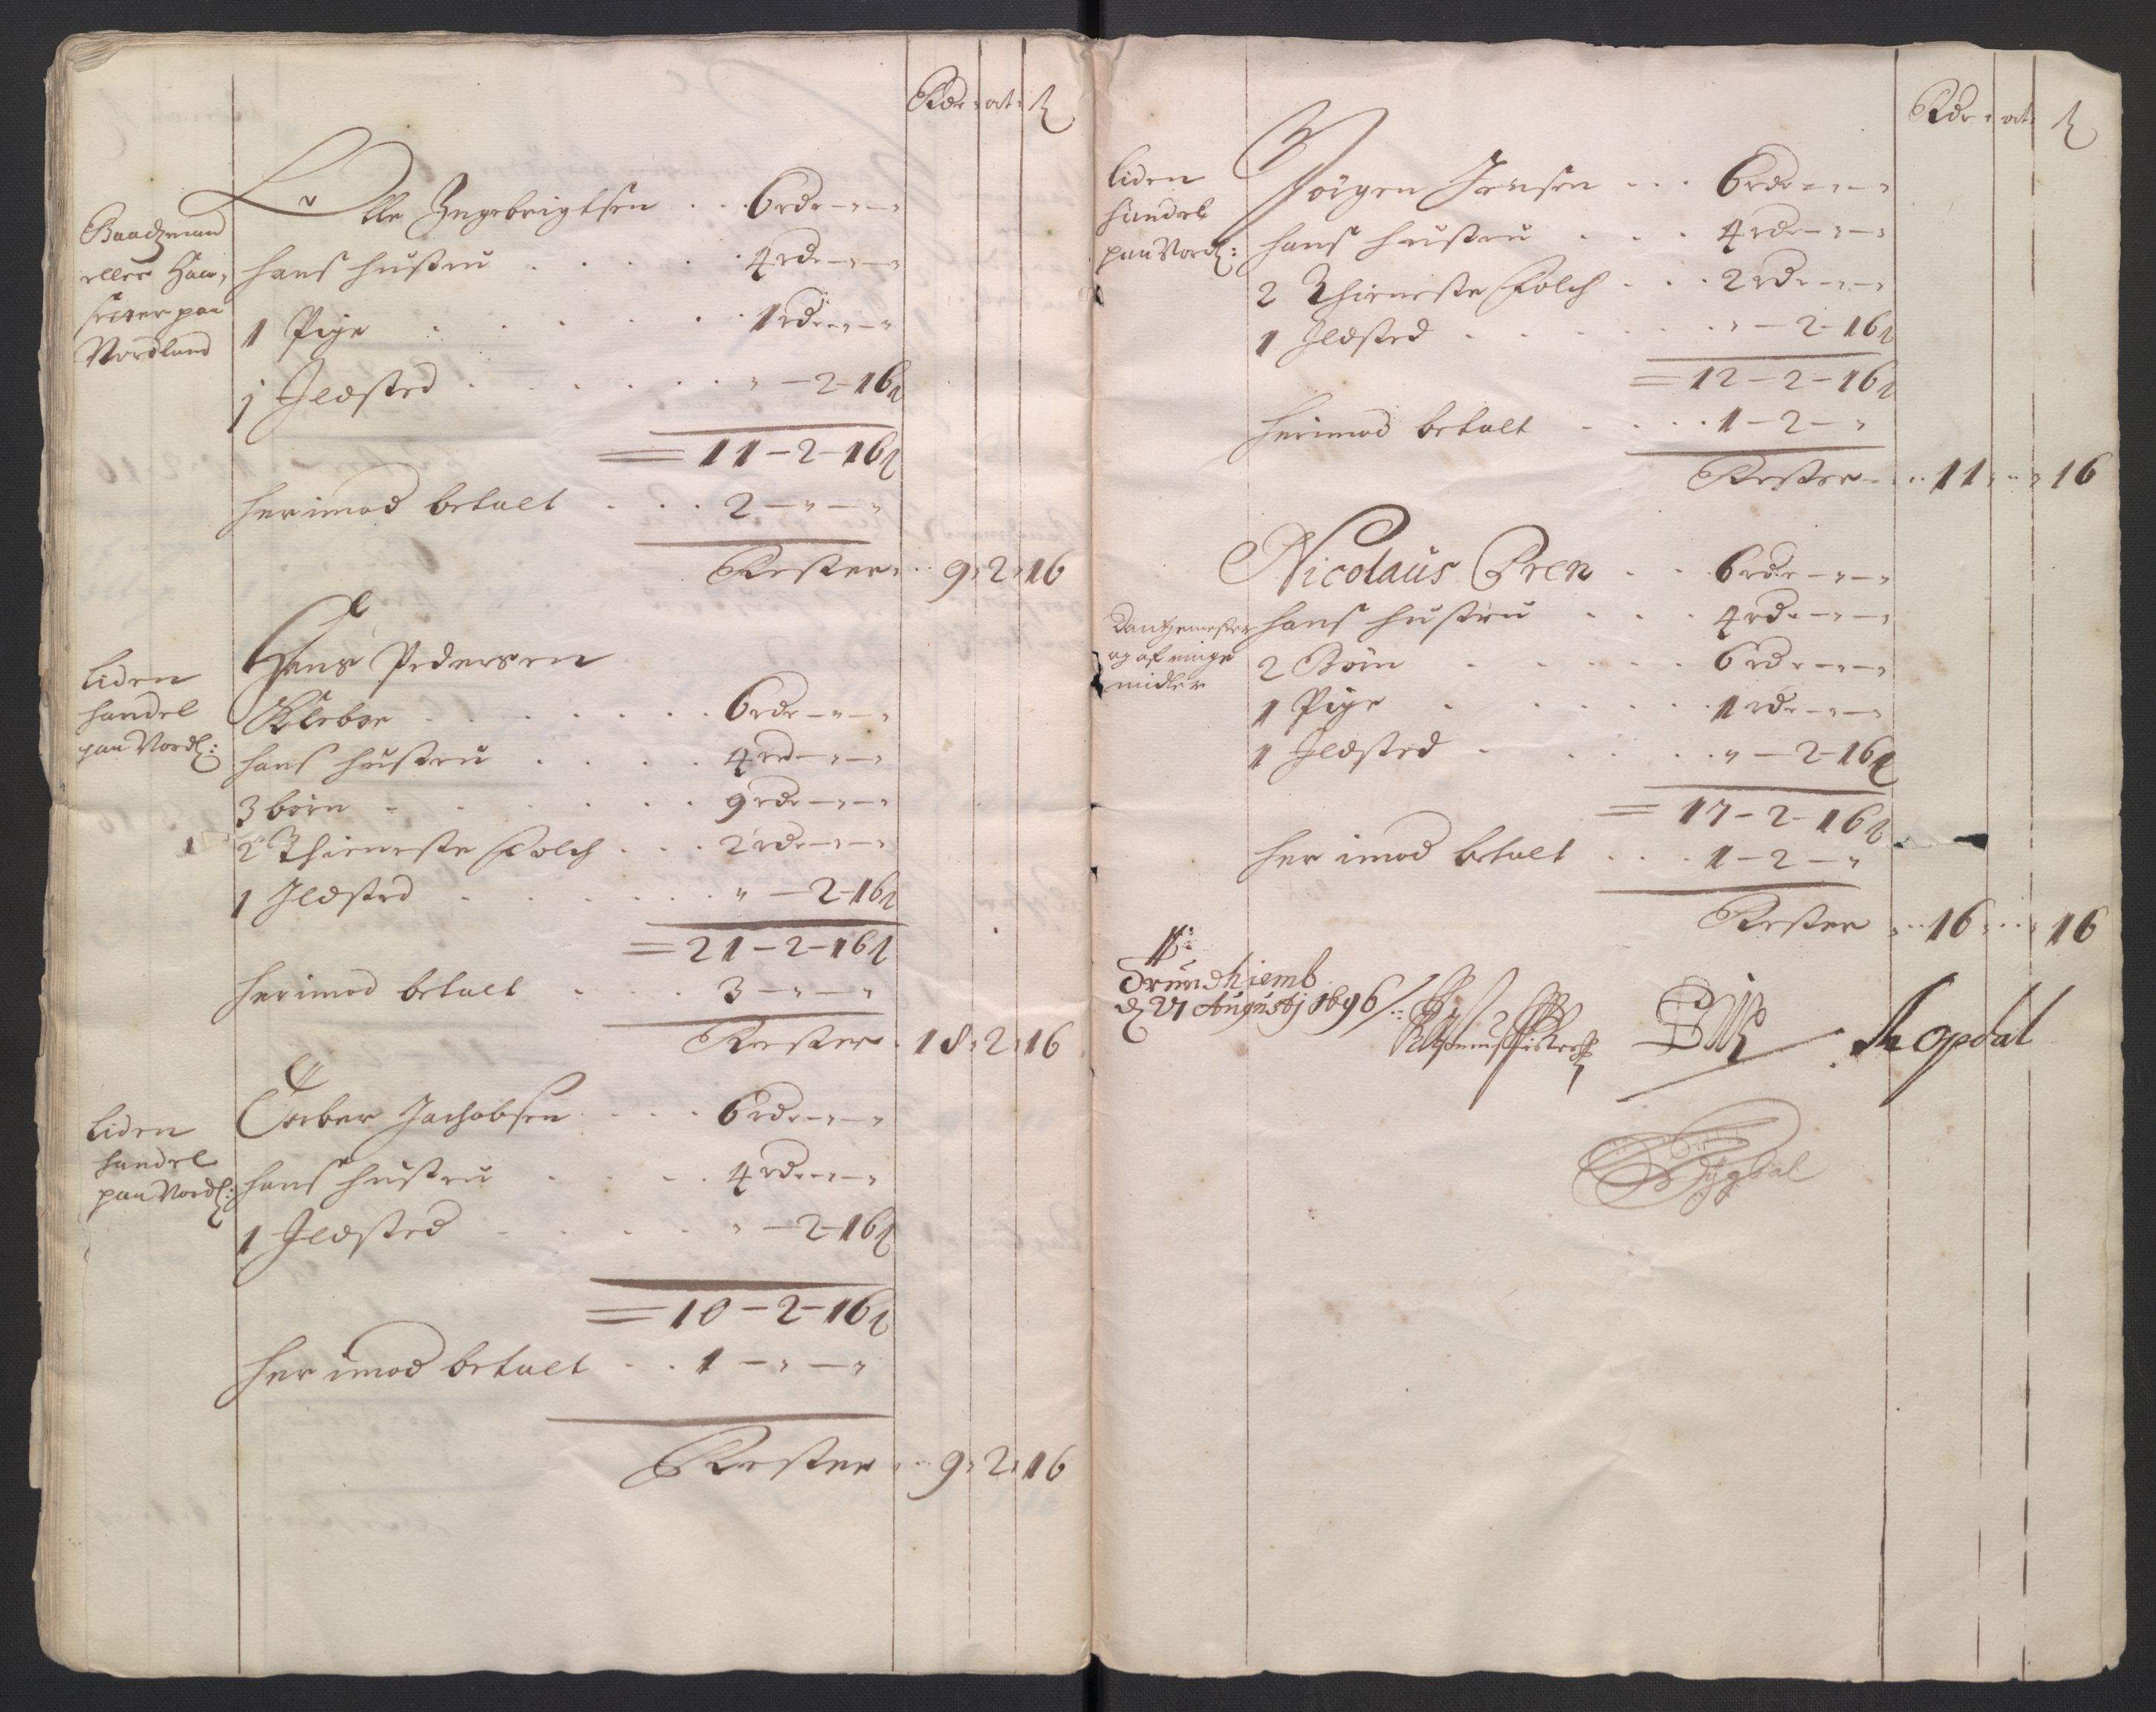 Rdr ort ß
Baadzmand
eller Haa,
sætter paa
Nordland
Olle Ingebrigtsen . . 6 rdr - " - "
hans hustru . . . . 4 rdr - " - "
1 Pige . . . . . 1 rdr - " - "
1 Ildsted . . . . . " - 2 - 16 ß
= 11 - 2 - 16 ß
herimod betalt . . . 2 - " - "
Rester . . 9 : 2 : 16
liden
handel
paa Nordl:
Hans Pedersen
Kleboe . . . . . 6 rdr - " - "
hans hustru . . . . 4 rd - " - "
3 børn . . . . . 9 rdr - " - "
1
2 Thieneste Folch . . . 2 rdr - " - "
1 Ildsted . . . . . " - 2 - 16 ß
= 21 - 2 - 16 ß
herimod betalt . . . 3 - " - "
Rester . 18 : 2 : 16
liden
handel
paa Nordl:
Jachobsen . . . 6 rdr - " - "
hans hustru . . . . 4 rdr - " - "
1 Ildsted . . . . . " - 2 - 16 ß
= 10 - 2 - 16 ß
her imod betalt . . 1 - " - "
Rester . . 9 : 2 : 16
Rdr ort ß
liden
handel
paa Nordl:
Jørgen Jensen . . . 6 rdr - " - "
hans hustru . . . 4 rdr - " - "
2 Thieneste Folch . . . 2 rdr - " - "
1 Ildsted . . . . . " - 2 - 16 ß
= 12 - 2 - 16 ß
herimod betalt . . . . 1 - 2 - "
Rester . . 11 : " : 16
Nicolaus Bren . . 6 rdr - " - "
Dantzemester
og af ringe
midler
hans hustru . . . 4 rdr - " - "
2 Børn . . . . . 6 rdr - " - "
1 Pige . . . . . 1 rdr - " - "
1 Ildsted . . . . . " - 2 - 16 ß
= 17 - 2 - 16 ß
her imod betalt . . . 1 - 2 - "
Rester . . 16 : " : 16
Trundhiemb
d 27 Augustj 1696
Hopdal